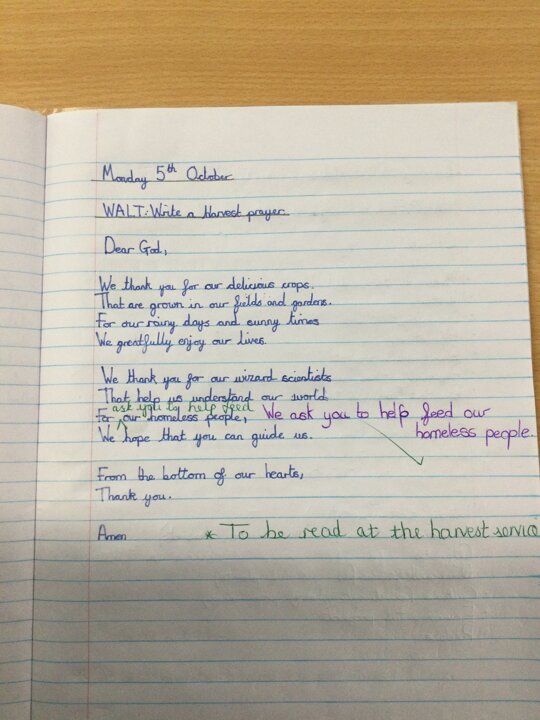 Monday 5th October
WALT: Write a Harvest prayer
Dear God,
We thank you for our delicious crops.
That are grown in our fields and gardens.
For our rainy days and sunny times
We greatfully enjoy our lives.
We thank you for our wizard scientists
That help us understand our world
ask you to help feed
For our homeless people,
We ask you to help feed our
homeless people.
We hope that you can guide us.
From the bottom of our hearts,
Thank you.
Amen
* To be read at the harvest service